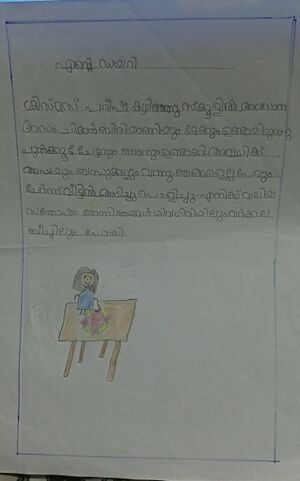 എന്റെ ഡയറി
ക്രിസ്മസ് പരീക്ഷ കഴിഞ്ഞു സ്കൂളിൽ അവസാന
ദിവസം ചിക്കൻ ബിരിയാണിയും കേക്കും ഉണ്ടായിരുന്നു
പുൽക്കൂട് ചേട്ടനും ഞാനും ഉണ്ടാക്കി. അവധിക്ക്
അപ്പയും ബന്ധുക്കളും വന്നു. ഞങ്ങളെല്ലാ പേരും
ചേർന്ന് വീട്ടിൽ അടിച്ചുപൊളിച്ചു. എനിക്ക് വലിയ
സന്തോഷം തോന്നി ഞങ്ങൾ ശിവഗിരിയിലും വർക്കല
ബീച്ചിലും പോയി.